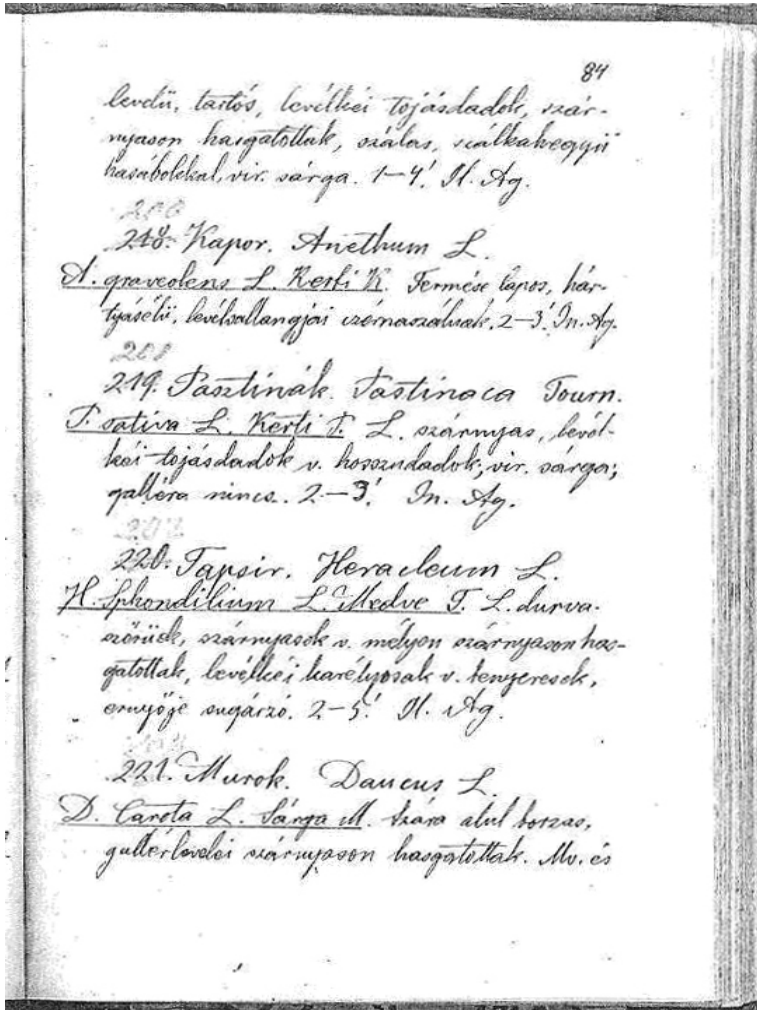 84
levdü, tartós, levélkéi tojásdadok, szár-
nyason hasgatottak, szálas, szálkahegyü
hasábokkal, vir. sárga. 1–4' Jl. Ag.
200
218. Kapor. Anethum L.
A. graveolens L. Kerti K. Termése lapos, hár-
tyásélü, levélsallangjai czérnaszálnak. 2–3' Jn. Ag.
201
219. Pasztinák. Pastinaca Tourn.
P. sativa L. Kerti P. L. szárnyas, levél-
kéi tojásdadok v. hosszudadok; vir. sárga;
gallera nincs. 2–3' Jn. Ag.
202
220. Tapsir. Heracleum L.
H. Sphondilium L. Medve T. L. durva-
szőrüek, szárnyasok v. mélyen szárnyason has-
gatottak, levélkéi karélyosak v. tenyeresek,
ernyője sugárzó. 2–5' Jl. Ag.
221. Murok. Daucus L.
D. Carota L. Sárga M. Szára alul borzas,
gallérlevelei szárnyason hasgatottak. Mv. és